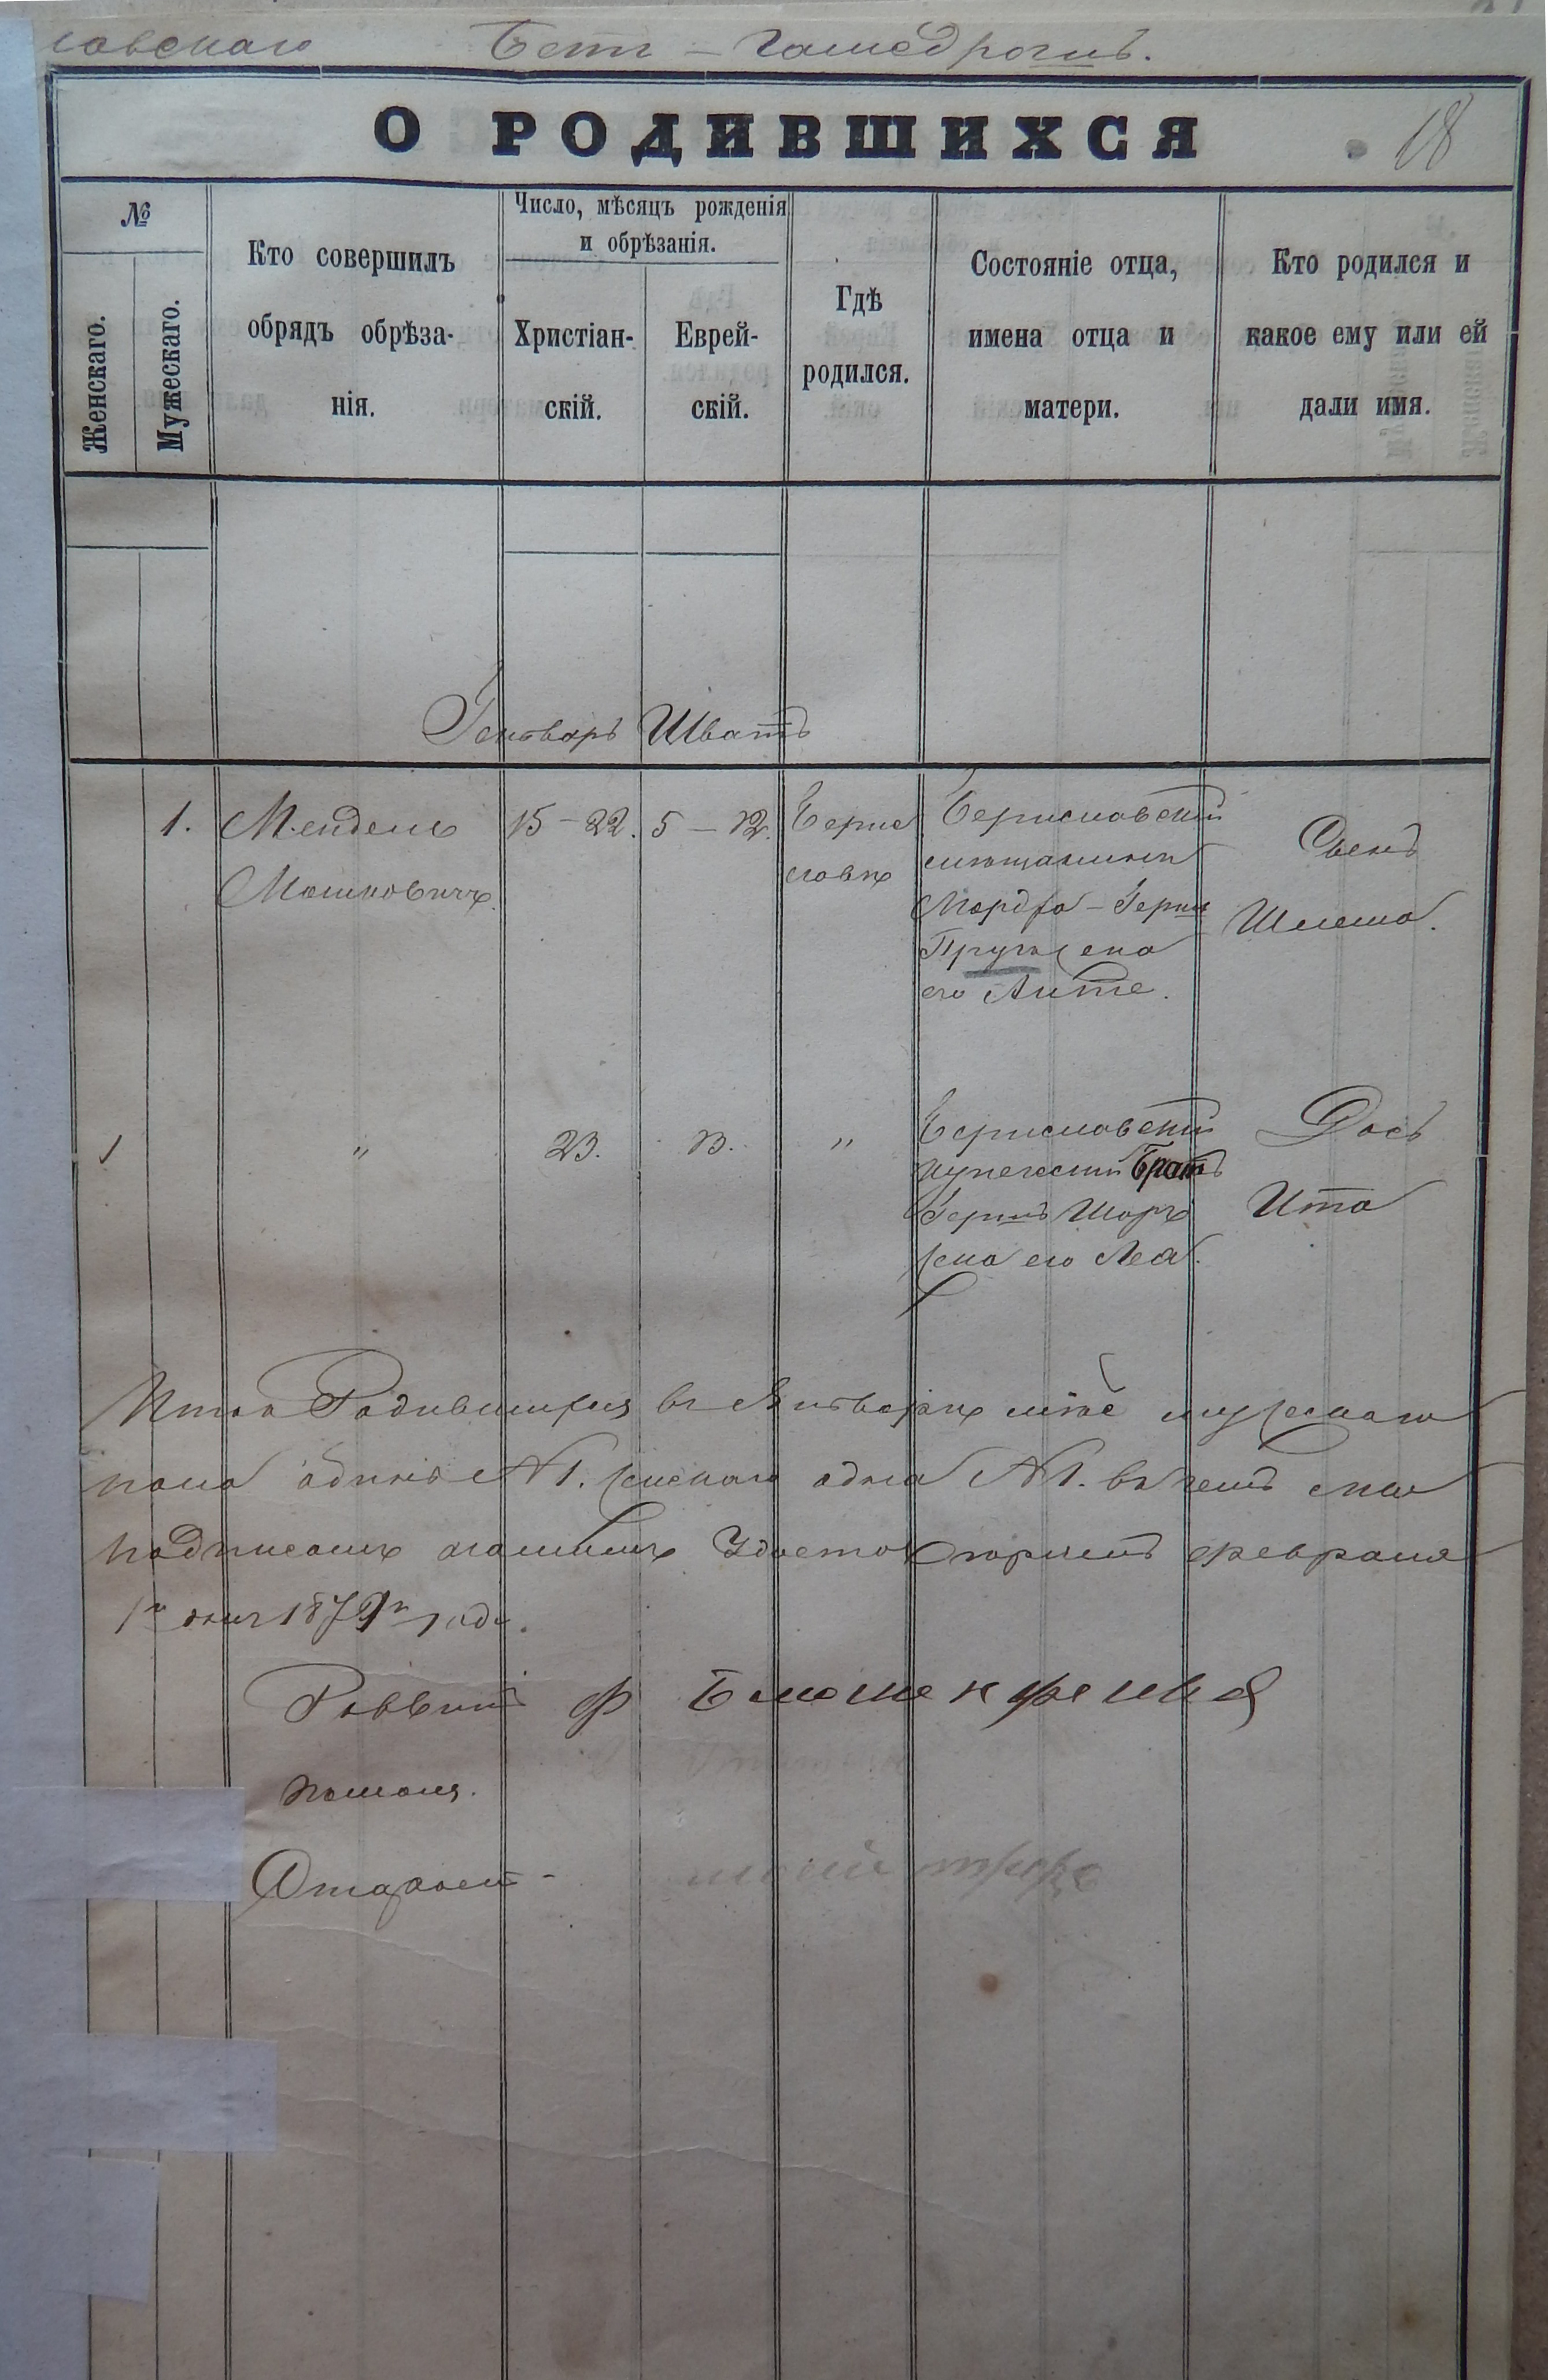 ловскаго Бетъ – Гамедрошъ.
О РОДИВШИХСЯ
18
№
Женскаго.
Мужескаго.
Кто совершилъ
обрядъ обрѣза-
нія.
Число, мѣсяцъ рожденія
и обрѣзанія.
Христіан-
скій.
Еврей-
скій.
Гдѣ
родился.
Состояніе отца,
имена отца и
матери.
Кто родился и
какое ему или ей
дали имя.
Генварь Шватъ
1. Мендель
Мошковичъ.
15 – 22.
5 – 12.
Берис
ловѣ
Бериславскій
мѣщанинъ
Мордко – Герш
жена
его
Сынъ
Шлема.
1 " 23. 13. "
Бериславскій
купеческій Братъ
Гершъ Шоръ
жена его Лея.
Дочь
Ита
Итого Родившихся въ Январѣ м-цѣ мужескаго
пола одинъ №1. женскаго одна №1. въ чемъ
подписомъ нашимъ февраля
1го дня 187 года.
Раввинъ
Староста -